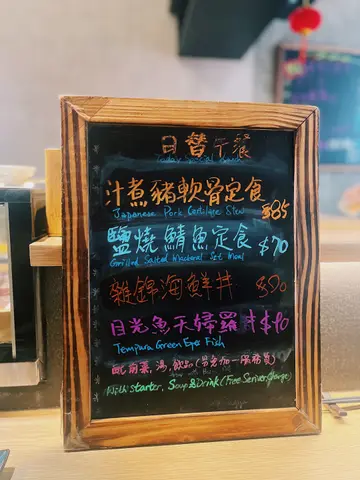 日替午餐
Today's Special Lunch
汁煮豬軟骨定食
Japanese Pork Cartilage Stew $85
鹽燒鯖魚定食 $70
Grilled Salted Mackerel Set Meal
雜錦海鮮丼 $70
目光魚天婦羅丼 $90
Tempura Green Eyes Fish
配前菜,湯,飲品(另加一服務費)
With starter, Soup & Drink (Free Service Charge)